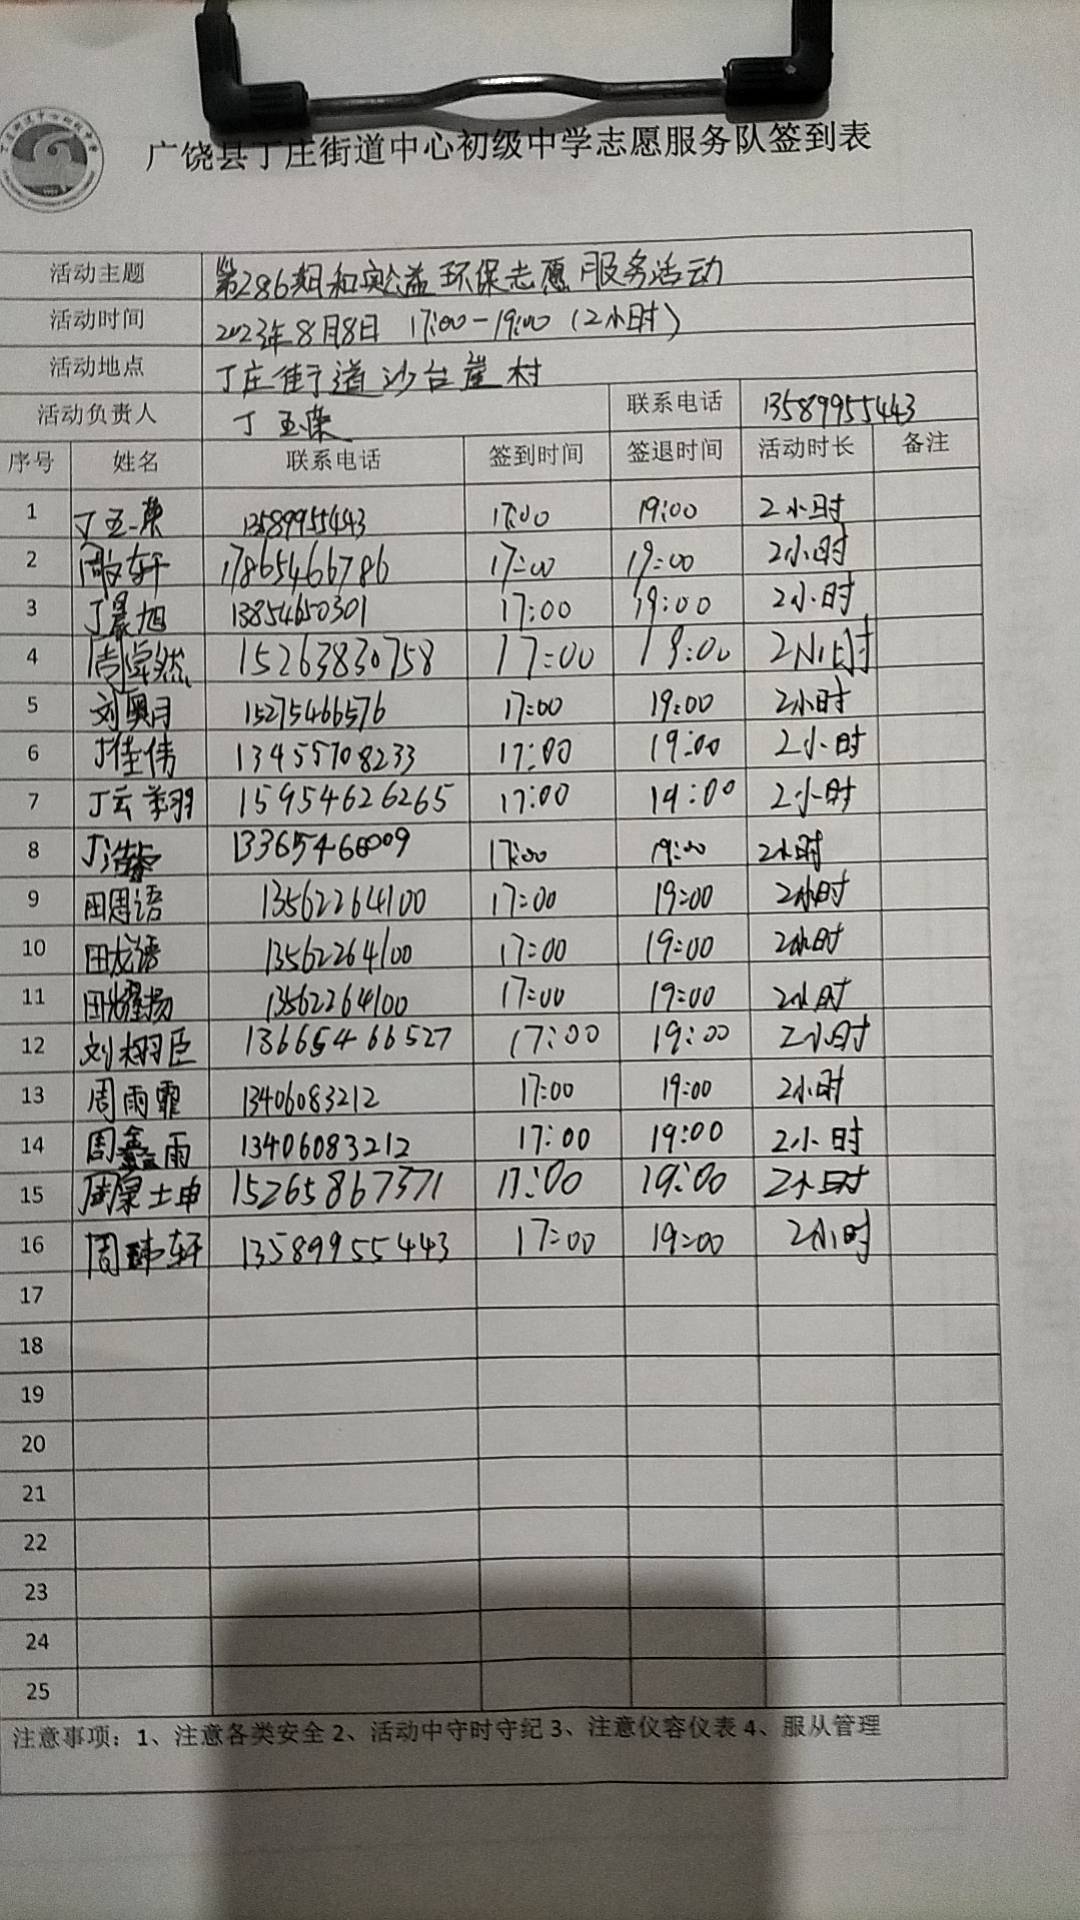 广饶县丁庄街道中心初级中学志愿服务队签到表
活动主题 第286期和实公益环保志愿服务活动
活动时间 2023年8月8日 17:00-19:00(2小时)
活动地点 丁庄街道沙台崖村
活动负责人 丁玉荣 联系电话 13589955443
序号 姓名 联系电话 签到时间 签退时间 活动时长 备注
1 丁玉荣 13589955443 17:00 19:00 2小时
2 17865466786 17:00 19:00 2小时
3 丁晨旭 13854650301 17:00 19:00 2小时
4 周卓然 15263830758 17:00 19:00 2小时
5 刘奥月 15275466576 17:00 19:00 2小时
6 丁佳伟 13455708233 17:00 19:00 2小时
7 丁云翔 15954626265 17:00 19:00 2小时
8 17:00 19:00 2小时
9 田恩语 13562264100 17:00 19:00 2小时
10 田龙语 13562264100 17:00 19:00 2小时
11 田耀扬 13562264100 17:00 19:00 2小时
12 刘栩臣 13665466527 17:00 19:00 2小时
13 周雨霏 13406083212 17:00 19:00 2小时
14 周鑫雨 13406083212 17:00 19:00 2小时
15 15265867371 17:00 19:00 2小时
16 周玮轩 13589955443 17:00 19:00 2小时
17
18
19
20
21
22
23
24
25
注意事项:1、注意各类安全 2、活动中守时守纪 3、注意仪容仪表 4、服从管理